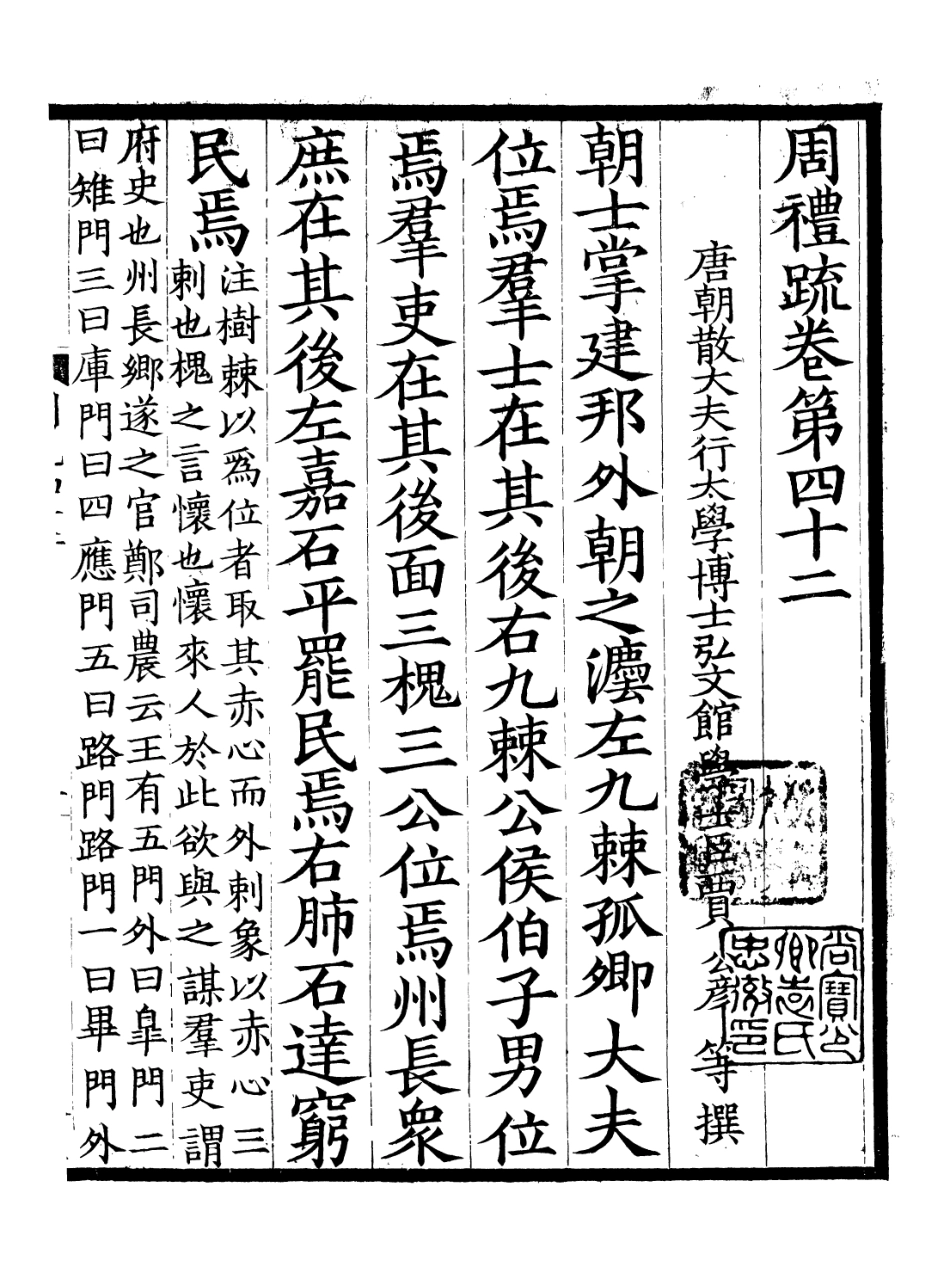 周禮疏卷第四十二
唐朝散大夫行太學博士弘文館學士臣賈公彥等撰
朝士掌建邦外朝之灋左九棘孤卿大夫
位焉羣士在其後右九棘公侯伯子男位
焉羣吏在其後面三槐三公位焉州長衆
庶在其後左嘉石平罷民焉右肺石達窮
民焉
注樹棘以爲位者取其赤心而外刺象以赤心三
刺也槐之言懷也懷來人於此欲與之謀羣吏謂
府史也州長鄉遂之官鄭司農云王有五門外曰臯門二
曰雉門三曰庫門曰四應門五曰路門路門一曰畢門外